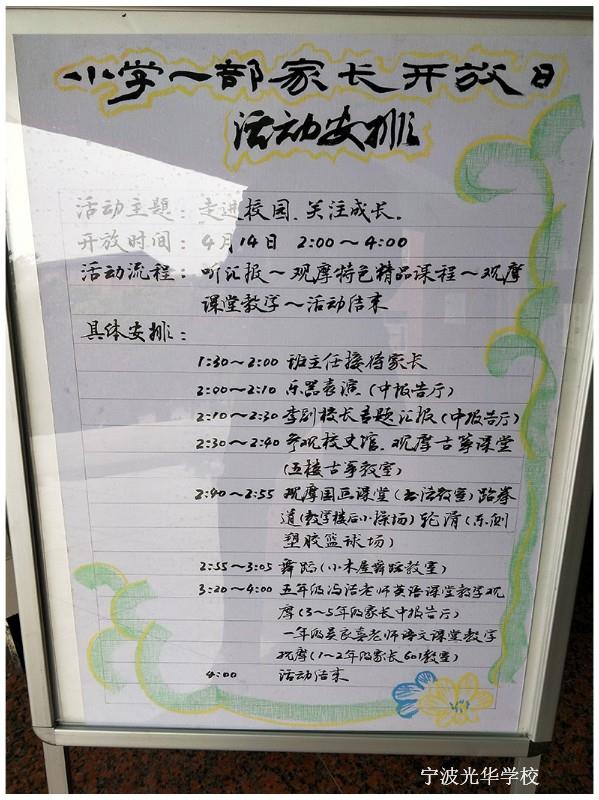 小学一部家长开放日
活动安排
活动主题：走进校园、关注成长.
开放时间：4月14日 2:00～4:00
活动流程：听汇报～观摩特色精品课程～观摩
课堂教学～活动结束
具体安排：
1:30～2:00 班主任接待家长
2:00～2:10 乐器表演（中报告厅）
2:10～2:30 李副校长专题汇报（中报告厅）
2:30～2:40 参观校史馆、观摩古筝课堂
（五楼古筝教室）
2:40～2:55 观摩国画课堂（书法教室）跆拳
道（教学楼后小操场）轮滑（东侧
塑胶篮球场）
2:55～3:05 舞蹈（小木屋舞蹈教室）
3:20～4:00 五年级冯洁老师英语课堂教学观
摩（3～5年级家长中报告厅）
一年级吴家喜老师语文课堂教学
观摩（1～2年级家长601教室）
4:00 活动结束
宁波光华学校